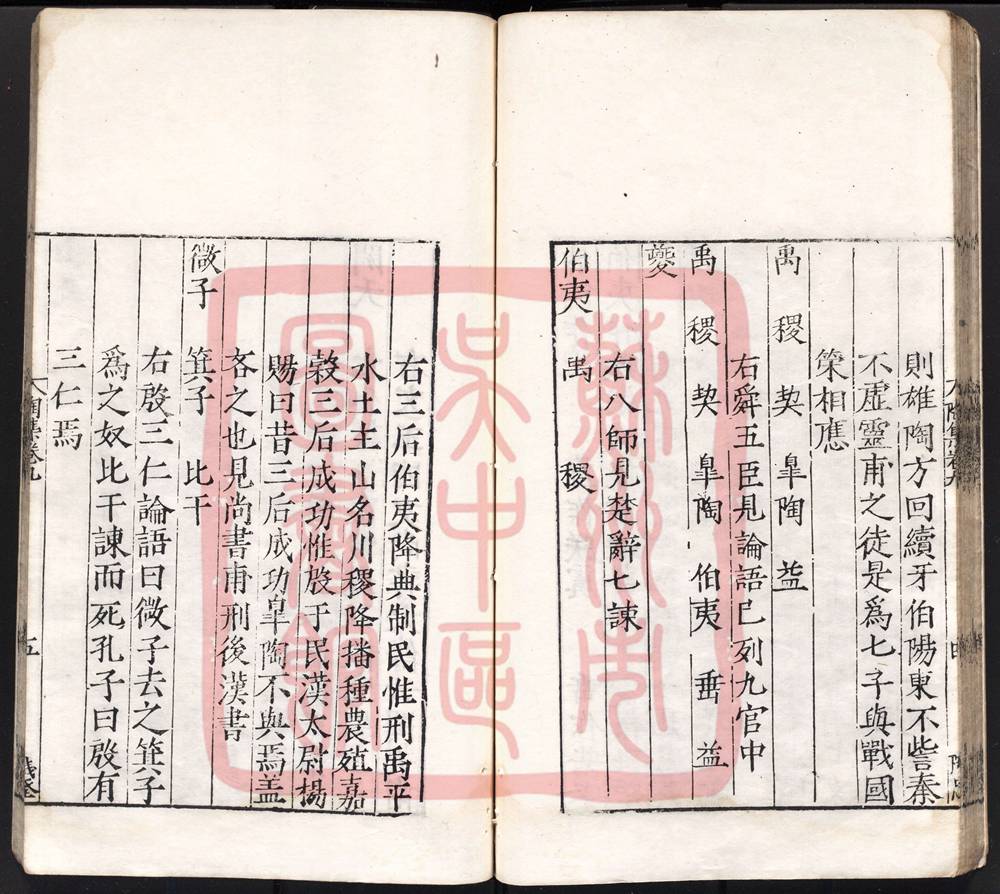 則雄陶方回續牙伯陽東不訾秦
不虛靈甫之徒是為七子與戰國
策相應
禹 稷 契 皐陶 益
右舜五臣見論語已列九官中
禹 稷 契 皐陶 伯夷 垂 益
夔
右八師見楚辭七諫
伯夷 禹 稷
右三后伯夷降典制民惟刑禹平
水土主山名川稷降播種農殖嘉
穀三后成功惟殷于民漢太尉楊
賜曰昔三后成功皐陶不與焉盖
吝之也見尚書甫刑後漢書
微子 箕子 比干
右殷三仁論語曰微子去之箕子
爲之奴比干諫而死孔子曰殷有
三仁焉
五
蘇州市
吳中區
圖書館